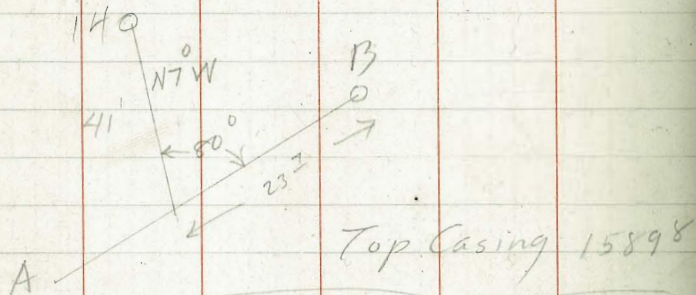 140
N7°W
B
41'
80°
23
Top Casing 15898
A